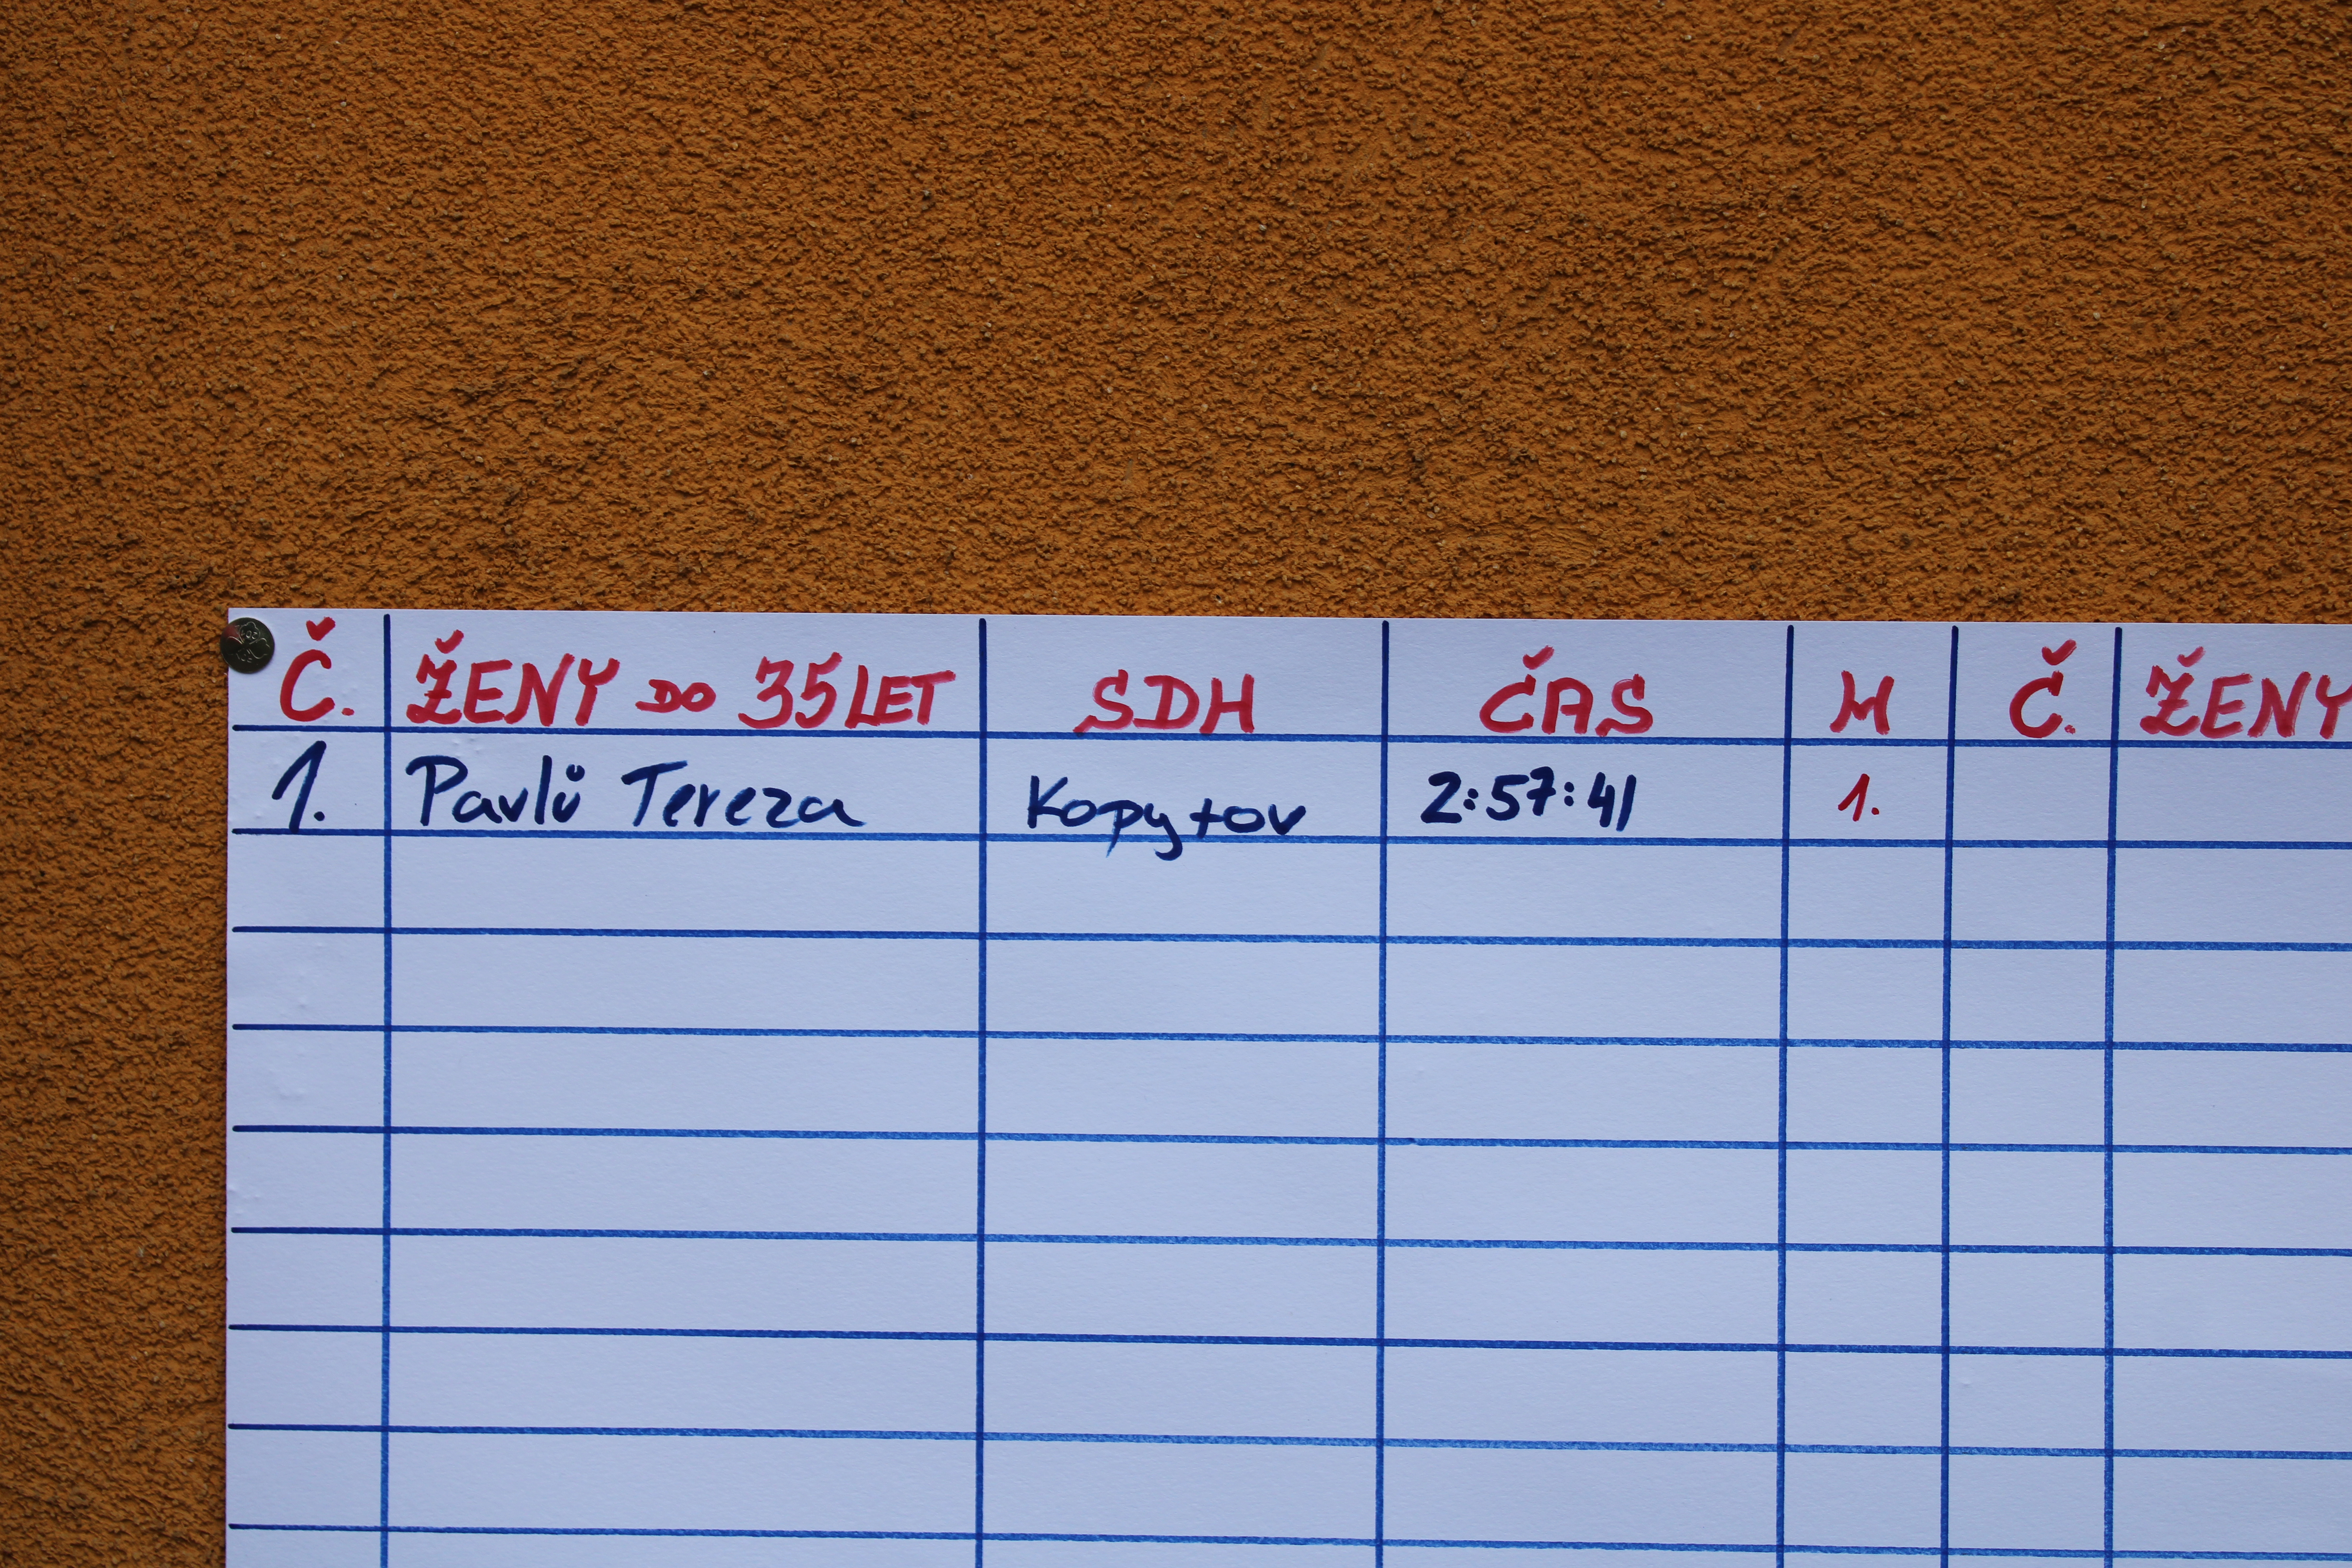 Č. ŽENY DO 35 LET SDH ČAS M Č. ŽENY
1. Pavlů Tereza Kopytov 2:57:41 1.